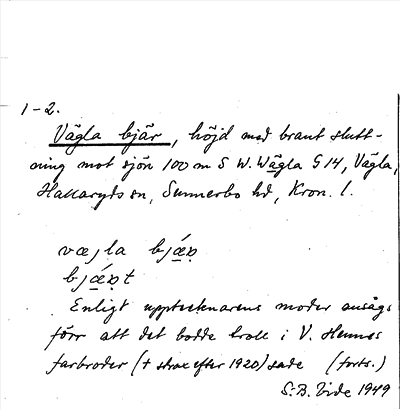 1-2.
Vägla bjär, höjd med brant slutt-
ning mot sjön 100 m S W. Wägla G 14, Vägla,
Hallaryds sn, Sunnerbo hd, Kron. l.
væjla bjǽṛ
bjǽṛt
Enligt upptecknarens moder ansågs
förr att det bodde troll i V. Hennes
farbroder († strax efter 1920) sade (forts.)
S. B. Vide 1949